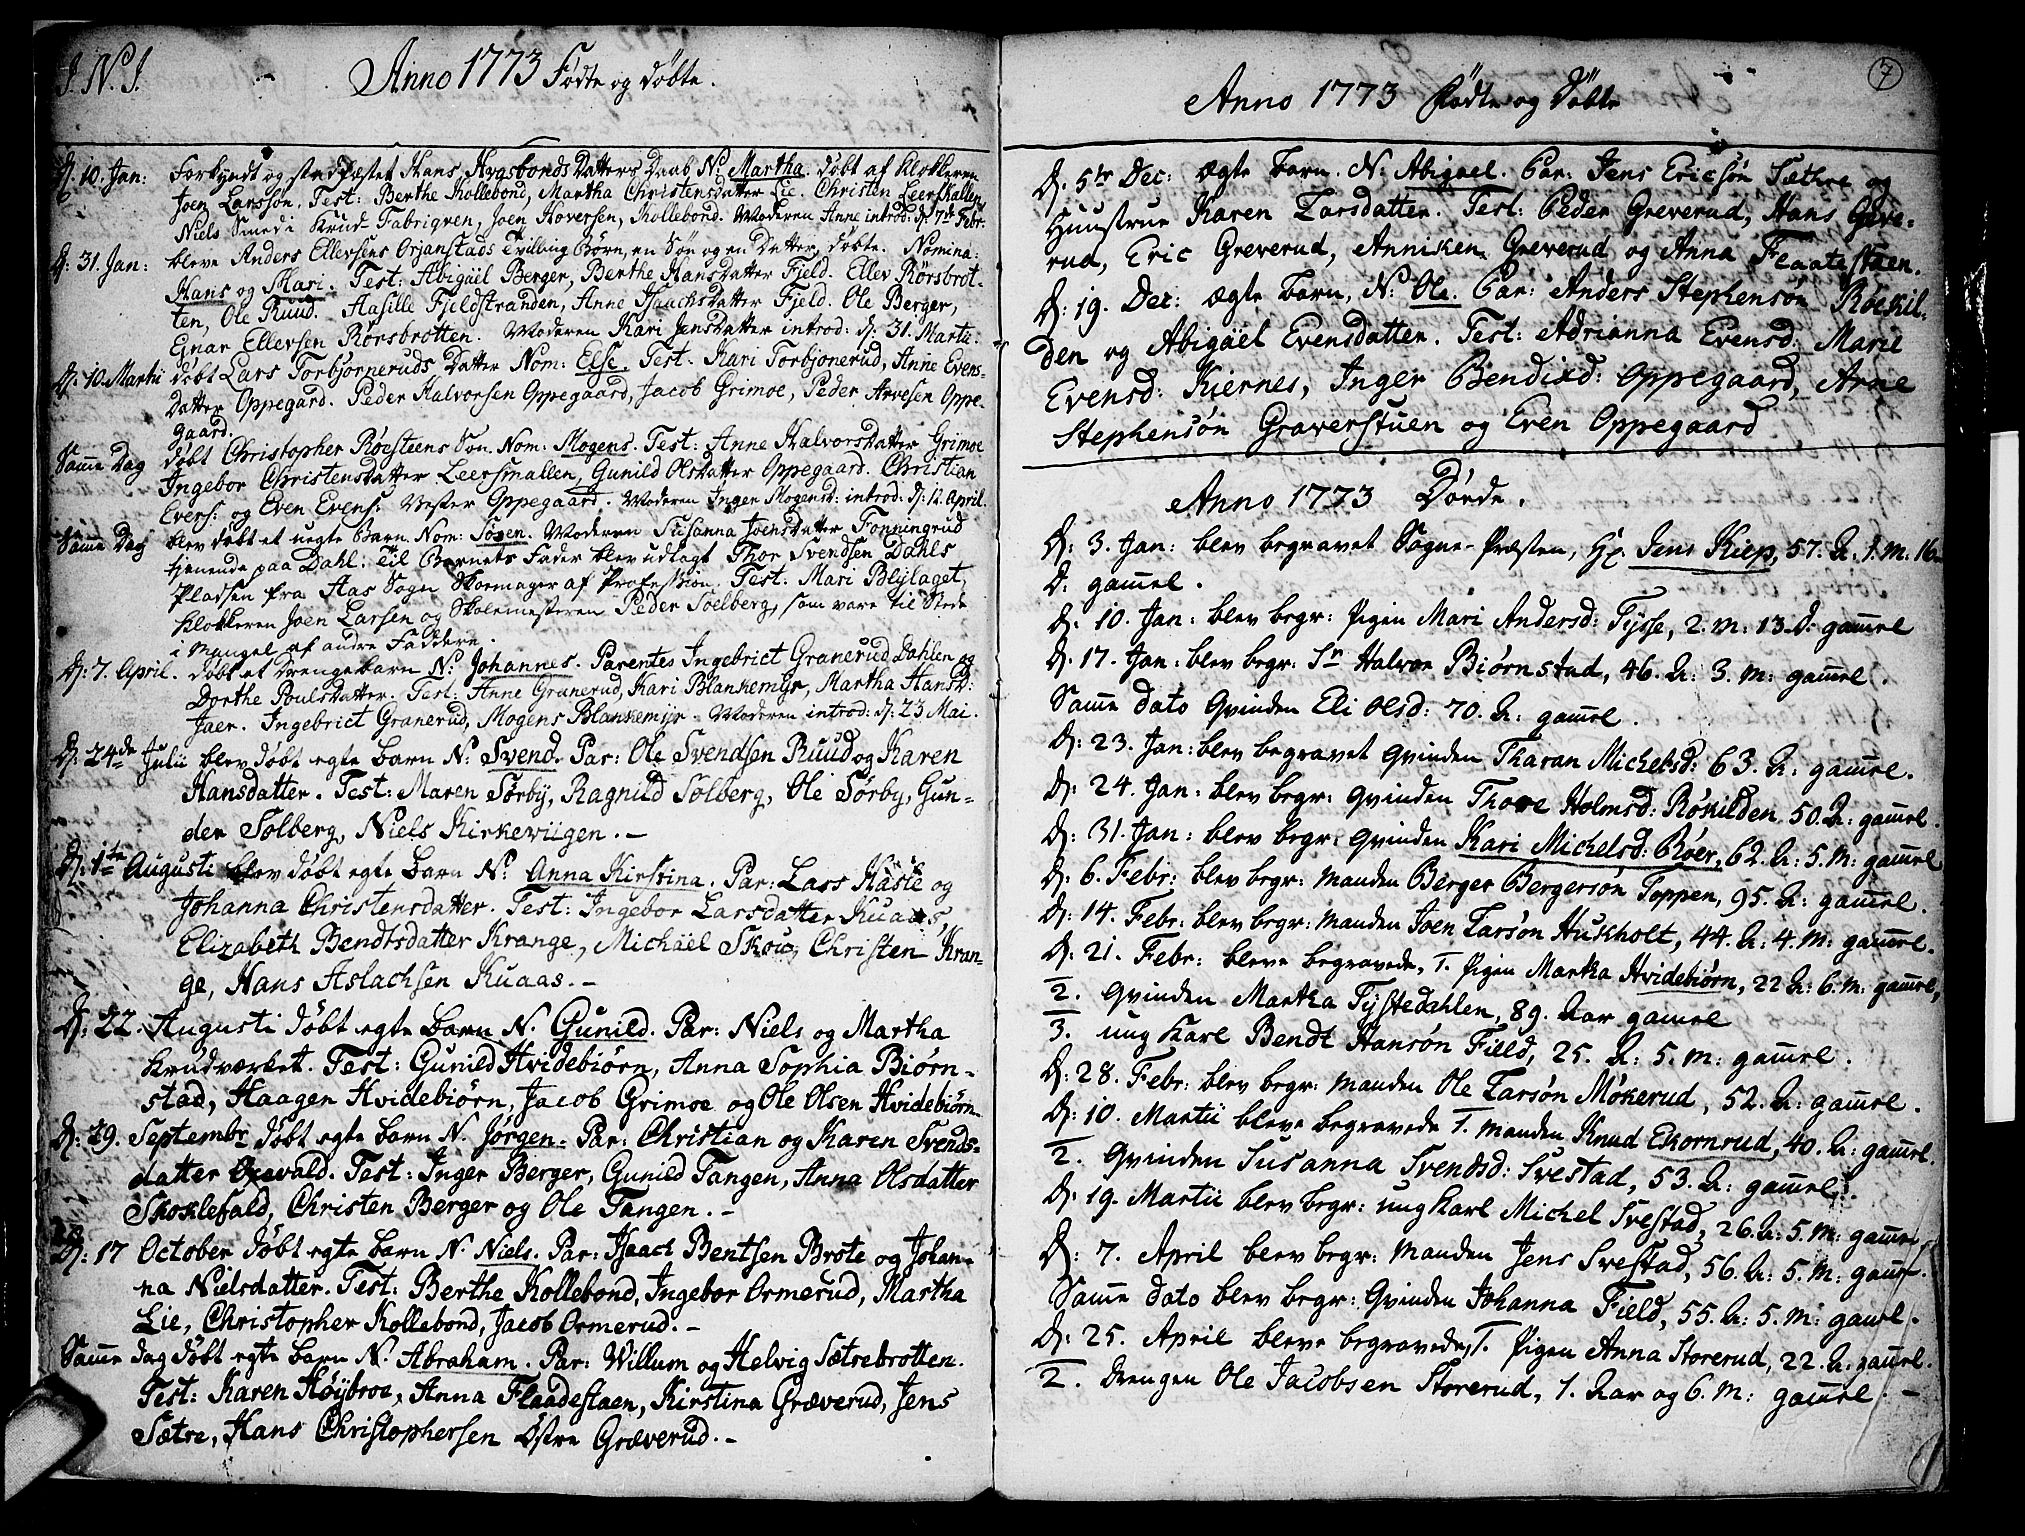 J. N. J.
Anno 1773 Fødte og døbte.
D: 10. Jan: Forkyndt og stadfæstet Hans Hvasbonds Datters Daab N. Martha. døbt af Klokkeren
Joen Larssøn. Test: Berthe Kollebond, Martha Christensdatter Lie. Christen Leerskallen
Niels Smed i Krud-Fabriqven, Joen Hoversen, Kollebond. Moderen Anne introd: d: 7de Febr:
D: 31. Jan: bleve Anders Ellevsens Orjanstads Tvilling Børn, en Søn og en Datter, døbte. Nomina:
Hans og Mari. Test: Abigäel Berger, Berthe Hansdatter Fjeld. Ellev Rorsbrot-
ten, Ole Ruud. Aasille Fjeldstranden, Anne Isaachsdatter Fjeld. Ole Berger,
Einar Ellevsen Rorsbrotten. Moderen Kari Jensdatter introd: d: 31. Martii.
D: 10. Martii døbt Lars Torbjørneruds Datter Nom: Else. Test. Kari Torbjonerud, Anne Evens-
datter Oppegard. Peder Halvorsen Oppegaard, Jacob Grimoe, Peder Arvesen Oppe-
gaard.
Samme Dag døbt Christopher Røesteens Søn. Nom: Mogens. Test: Anne Halvorsdatter Grimoe
Ingebor Christensdatter Leersmallen, Gunild Olsdatter Oppegaard. Christian
Evers: og Even Evens: Vester Oppegaard. Moderen Inger Mogensd: introd: d: 12. April.
Samme Dag blev døbt et uegte Barn Nom: Søren. Moderen Susanna Joensdatter Fonningrud
tjenende paa Dahl. Til Barnets Fader blev udlagt Thor Svendsen Dahls
Pladsen fra Aas Sogn Skoemager af Profession. Test: Mari Blylaget,
Klokkeren Joen Larsen og Skolemesteren Peder Soelberg, som vare til Stede
i Mangel af andre Faddere.
D: 7. April. døbt et Drengebarn N. Johannes. Parentes Ingebrict Granerud Dahlen og
Dorthe Poulsdatter. Test: Anne Granerud, Kari Blankemyr, Martha Hansd:
Jaer. Ingebrict Granerud, Mogens Blankemyr. Moderen introd: d: 23 Mai.
D: 24de Julii blev døbt egte barn N: Svend. Par: Ole Svendsen Ruud og Karen
Hansdatter. Test: Maren Sørby, Ragnild Solberg, Ole Sørby, Gun-
der Solberg, Niels Kirkeviigen. -
D: 1ste Augusti blev døbt egte barn N: Anna Kirstina. Par: Lars Haslie og
Johanna Christensdatter. Test: Ingebor Larsdatter Kuaas,
Elizabeth Bendtsdatter Krange, Michäel Skou, Christen Kran-
ge, Hans Aslachsen Kuaas. -
D: 22. Augusti døbt egte barn N. Gunild. Par: Niels og Martha
Krudværket. Test: Gunild Hvidebiørn, Anna Sophia Biørn-
stad, Haagen Hvidebiørn, Jacob Grimoe og Ole Olsen Hvidebiørn.
D: 29. Septembr døbt egte barn N. Jørgen. Par: Christian og Karen Svends-
datter Oxevald. Test: Inger Berger, Gunild Tangen, Anna Olsdatter
Skoklefald, Christen Berger og Ole Tangen. -
D: 17 October døbt egte barn N. Niels. Par: Isaach Bentsen Brote og Johan-
na Nielsdatter. Test: Berthe Kollebond, Ingebor Ormerud, Martha
Lie, Christopher Kollebond, Jacob Ormerud. -
Samme dag døbt egte barn N. Abraham. Par: Willum og Helvig Sætrebrotten.
Test: Karen Høybroe, Anna Flaadestaen, Kirstina Græverud, Jens
Sætre, Hans Christophersen Østre Græverud. -
7
Anno 1773 Fødte og Døbte
D. 5te Dec: ægte barn. N: Abigael. Par: Jens Ericsøn Sæthre og
Huustrue Karen Larsdatter. Test: Peder Greverud, Hans Greve-
rud, Eric Greverud, Anniken Greverud og Anna Flaatestaen.
D: 19. Dec: ægte barn, N: Ole. Par: Anders Stephensøn Røeskil-
den og Abigäel Evensdatter. Test: Adrianna Evensd: Marie
Evensd: Kiernes, Inger Bendixd: Oppegaard, Arne
Stephensøn Graverstuen og Even Oppegaard
Anno 1773 Døde.
D: 3. Jan: blev begravet Sogne-Præsten, Hr. Jens Kiep, 57. A: 1. M: 16.
D. gammel.
D: 10. Jan: blev begr: Pigen Mari Andersd: Tysse, 2. M: 13. D: gammel
D. 17. Jan: blev begr: Sr Halvor Biørnstad, 46. A: 3. M: gammel.
Samme dato Qvinden Eli Olsd: 70. A: gammel.
D: 23. Jan: blev begravet Qvinden Tharan Michelsd: 63. A: gammel.
D: 24. Jan: blev begr: Qvinden Thore Holmsd: Røskilden, 50. A: gammel.
D: 31. Jan: blev begr: Qvinden Kari Michelsd: Røer, 62. A: 5. M: gammel
D: 6. Febr: blev begr: Manden Berger Bergersøn Toppen, 95. A: gammel.
D: 14. Febr: blev begr: Manden Joen Larsøn Huskholt, 44. A: 4. M: gammel.
D: 21. Febr: bleve begravede, 1. Pigen Martha Hvidebiørn, 22 A: 6. M: gammel,
2. Qvinden Martha Tystedahlen, 89. Aar gammel
3. ung Karl Bendt Hansøn Field, 25. A: 5. M: gammel.
D: 28. Febr: blev begr: Manden Ole Larsøn Møkerud, 52. A: gammel.
D: 10. Martii bleve begravede 1. Manden Knud Ekornrud, 40. A: gammel.
2. Qvinden Susanna Svendsd: Svestad, 53. A: gammel.
D: 19. Martii blev begr: ung Karl Michel Svestad, 26. A: 5. M: gammel
D: 7. April blev begr: Manden Jens Svestad, 56. A: 5. M: gamm.
Samme dato blev begr: Qvinden Johanna Field, 55. A: 5. M: gammel.
D: 25. April bleve begravede, 1. Pigen Anna Storerud, 22. A: gammel.
2. Drengen Ole Jacobsen Storerud, 1. Aar og 6. M: gammel. -